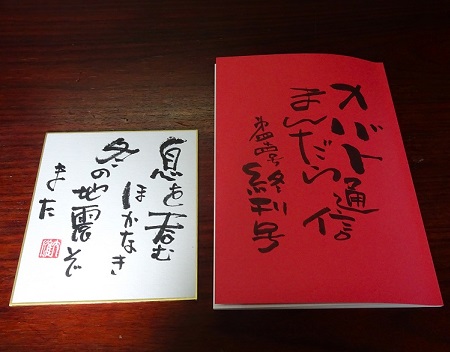 オバト通信
まんだら
終刊号
息を呑む
ほかなき
冬の地震ぞ
また